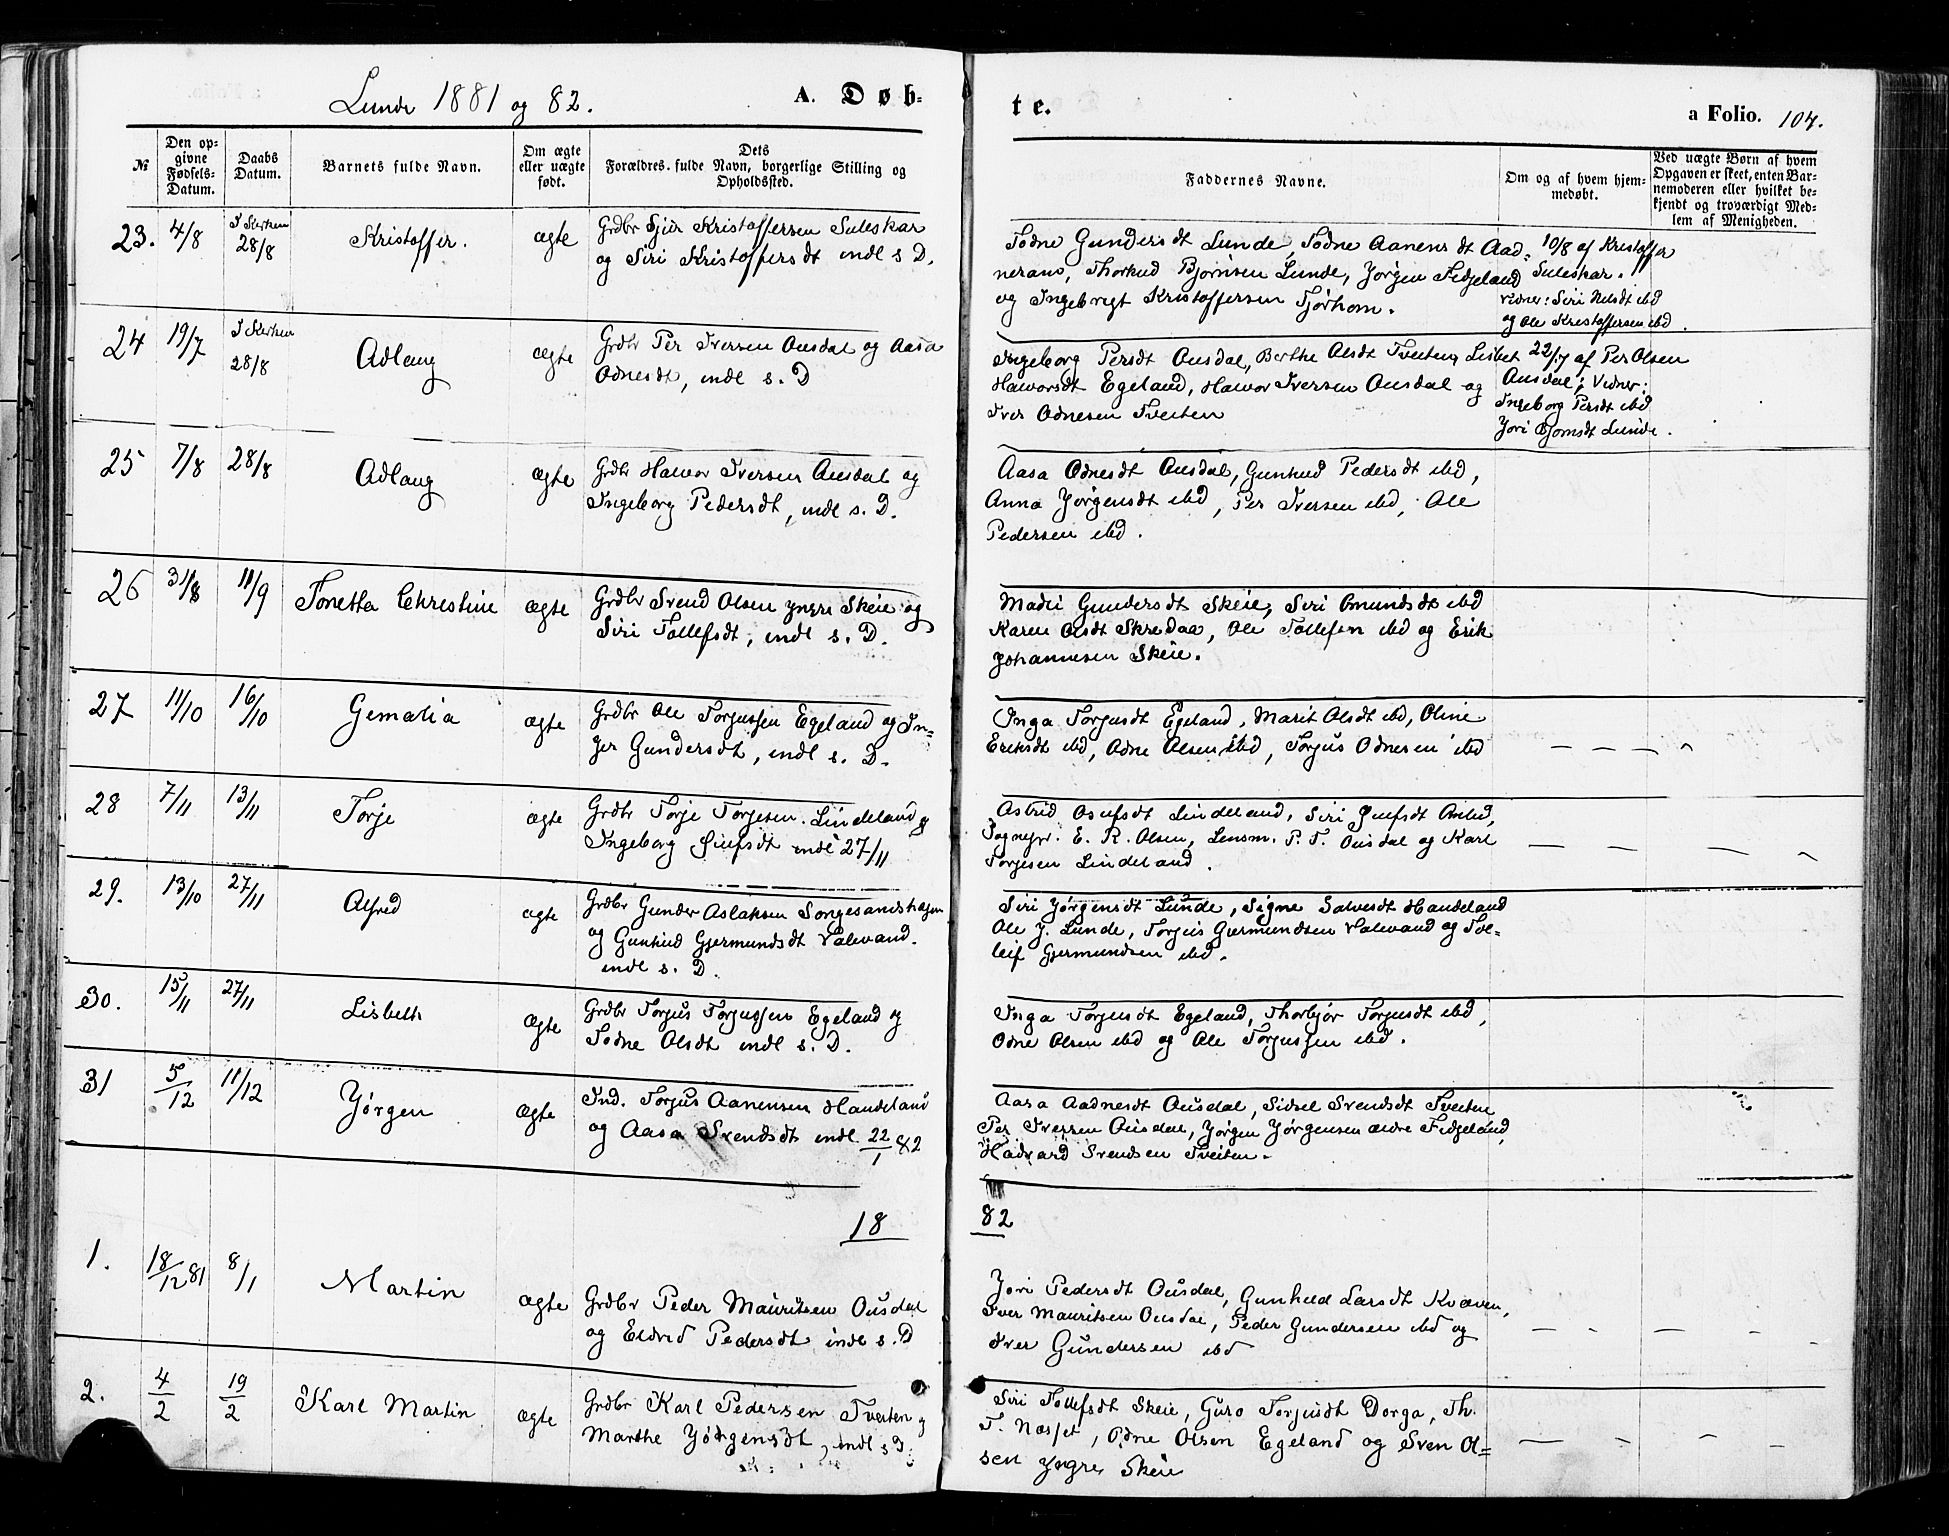 Lunde 1881 og 82.
A. Døb-
te.
a Folio. 104.
№
Den op-
givne
Fødsels-
Datum.
Daabs
Datum.
Barnets fulde Navn.
Om ægte
eller uægte
født.
Dets
Forældres fulde Navn, borgerlige Stilling og
Opholdssted.
Faddernes Navne.
Om og af hvem hjem-
medøbt.
Ved uægte Børn af hvem
Opgaven er skeet, enten Bar-
nemoderen eller hvilket be-
kjendt og troværdigt Med-
lem af Menigheden.
23. 4/8 28/8 Kristoffer. ægte
Grdbr Kristoffersen Suleskar
og Siri Kristoffersdt indl s D.
Todne Gundersdt Lunde, Todne Aanensdt Aad-
neram, Bjornsen Lunde, Jørgen Fidjeland
og Ingebrigt Kristoffersen Tjørhom.
10/8 af Kristoffer
Suleskar.
Vidner: Siri Nilsdt ibd
og Ole Kristoffersen ibd.
24 19/7 28/8 Adlaug ægte
Grdbr Per Iversen Ousdal og Aasa
Odnesdt, indl s. D
Ingeborg Persdt Ousdal, Berthe Olsdt Tveiten, Lisbet
Hawordt Egeland, Hawor Iversen Ousdal og
Iver Odnesen Tveiten
22/7 af Per Olsen
Ousdal; Vidner:
Ingeborg Persdt ibd
Jori Bjornsdt Lunde.
25 7/8 28/8 Adlaug ægte
Grdbr Hawor Iversen Ousdal og
Ingeborg Pedersdt, indl s. D.
Aasa Odnesdt Ousdal, Gunhild Pedersdt ibd,
Anna Jørgensdt ibd, Per Iversen ibd, Ole
Pedersen ibd.
26 31/8 11/9 Tonetta Christine ægte
Grdbr Svend Olsen yngre Skeie og
Siri Tollefsdt, indl s. D.
Madli Gundersdt Skeie, Siri Omundsdt ibd
Karen Olsdt Skredaa, Ole Tollefsen ibd og Erik
Johannesen Skeie.
27 11/10 16/10 Gemalia ægte
Grdbr Ole Torjussen Egeland og In-
ger Gundersdt, indl s. D.
Inga Torjusdt Egeland, Marit Olsdt ibd, Oline
Eriksdt ibd, Odne Olsen ibd, Torjus Odnesen ibd
28 7/11 13/11 Torje ægte
Grdbr Torje Torjesen Lindeland og
Ingeborg indl 27/11
Astrid Lindeland, Siri
Sognepr. E. R. Olsen, Lensm. P. T. Ousdal og Karl
Torjesen Lindeland.
29. 13/10 27/11 Alfred ægte
Grdbr Gunder Aslaksen
og Gunhild Gjermundsdt Valevand.
indl s. D.
Siri Jørgensdt Lunde, Signe Salvesdt Handeland
Ole J. Lunde, Torjus Gjermundsen Valevand og Tol-
leif Gjermundsen ibd.
30. 15/11 27/11 Lisbeth ægte
Grdbr Torjus Torjussen Egeland og
Todne Olsdt indl s. D.
Inga Torjusdt Egeland, Thorbjør Torjusdt ibd,
Odne Olsen ibd og Ole Torjussen ibd.
31 5/12 11/12 Jørgen ægte
Ind. Torjus Aanensen Handeland
og Aasa Svendsdt indl 22/1 82
Aasa Aadnesdt Ousdal, Sidsel Svendsdt Tveiten
Per Iversen Ousdal, Jørgen Jørgensen ældre Fidjeland,
Haavard Svendsen Tveiten.
18
82
1. 18/12 81 8/1 Martin ægte
Grdbr Peder Mauritsen Ousdal
og Eldrid Pedersdt indl s. D
Jori Pedersdt Ousdal, Gunhild Larsdt Kvæven,
Iver Mauritsen Ousdal, Peder Gundersen ibd og
Iver Gundersen ibd
2. 4/2 19/2 Karl Martin ægte
Grdbr Karl Pedersen Tveiten og
Marthe Jørgensdt, indl s D.
Siri Tollefsdt Skeie, Guro Torjusdt Dorga, Th.
T. Næsset, Odne Olsen Egeland og Sven Ol-
sen yngre Skeie